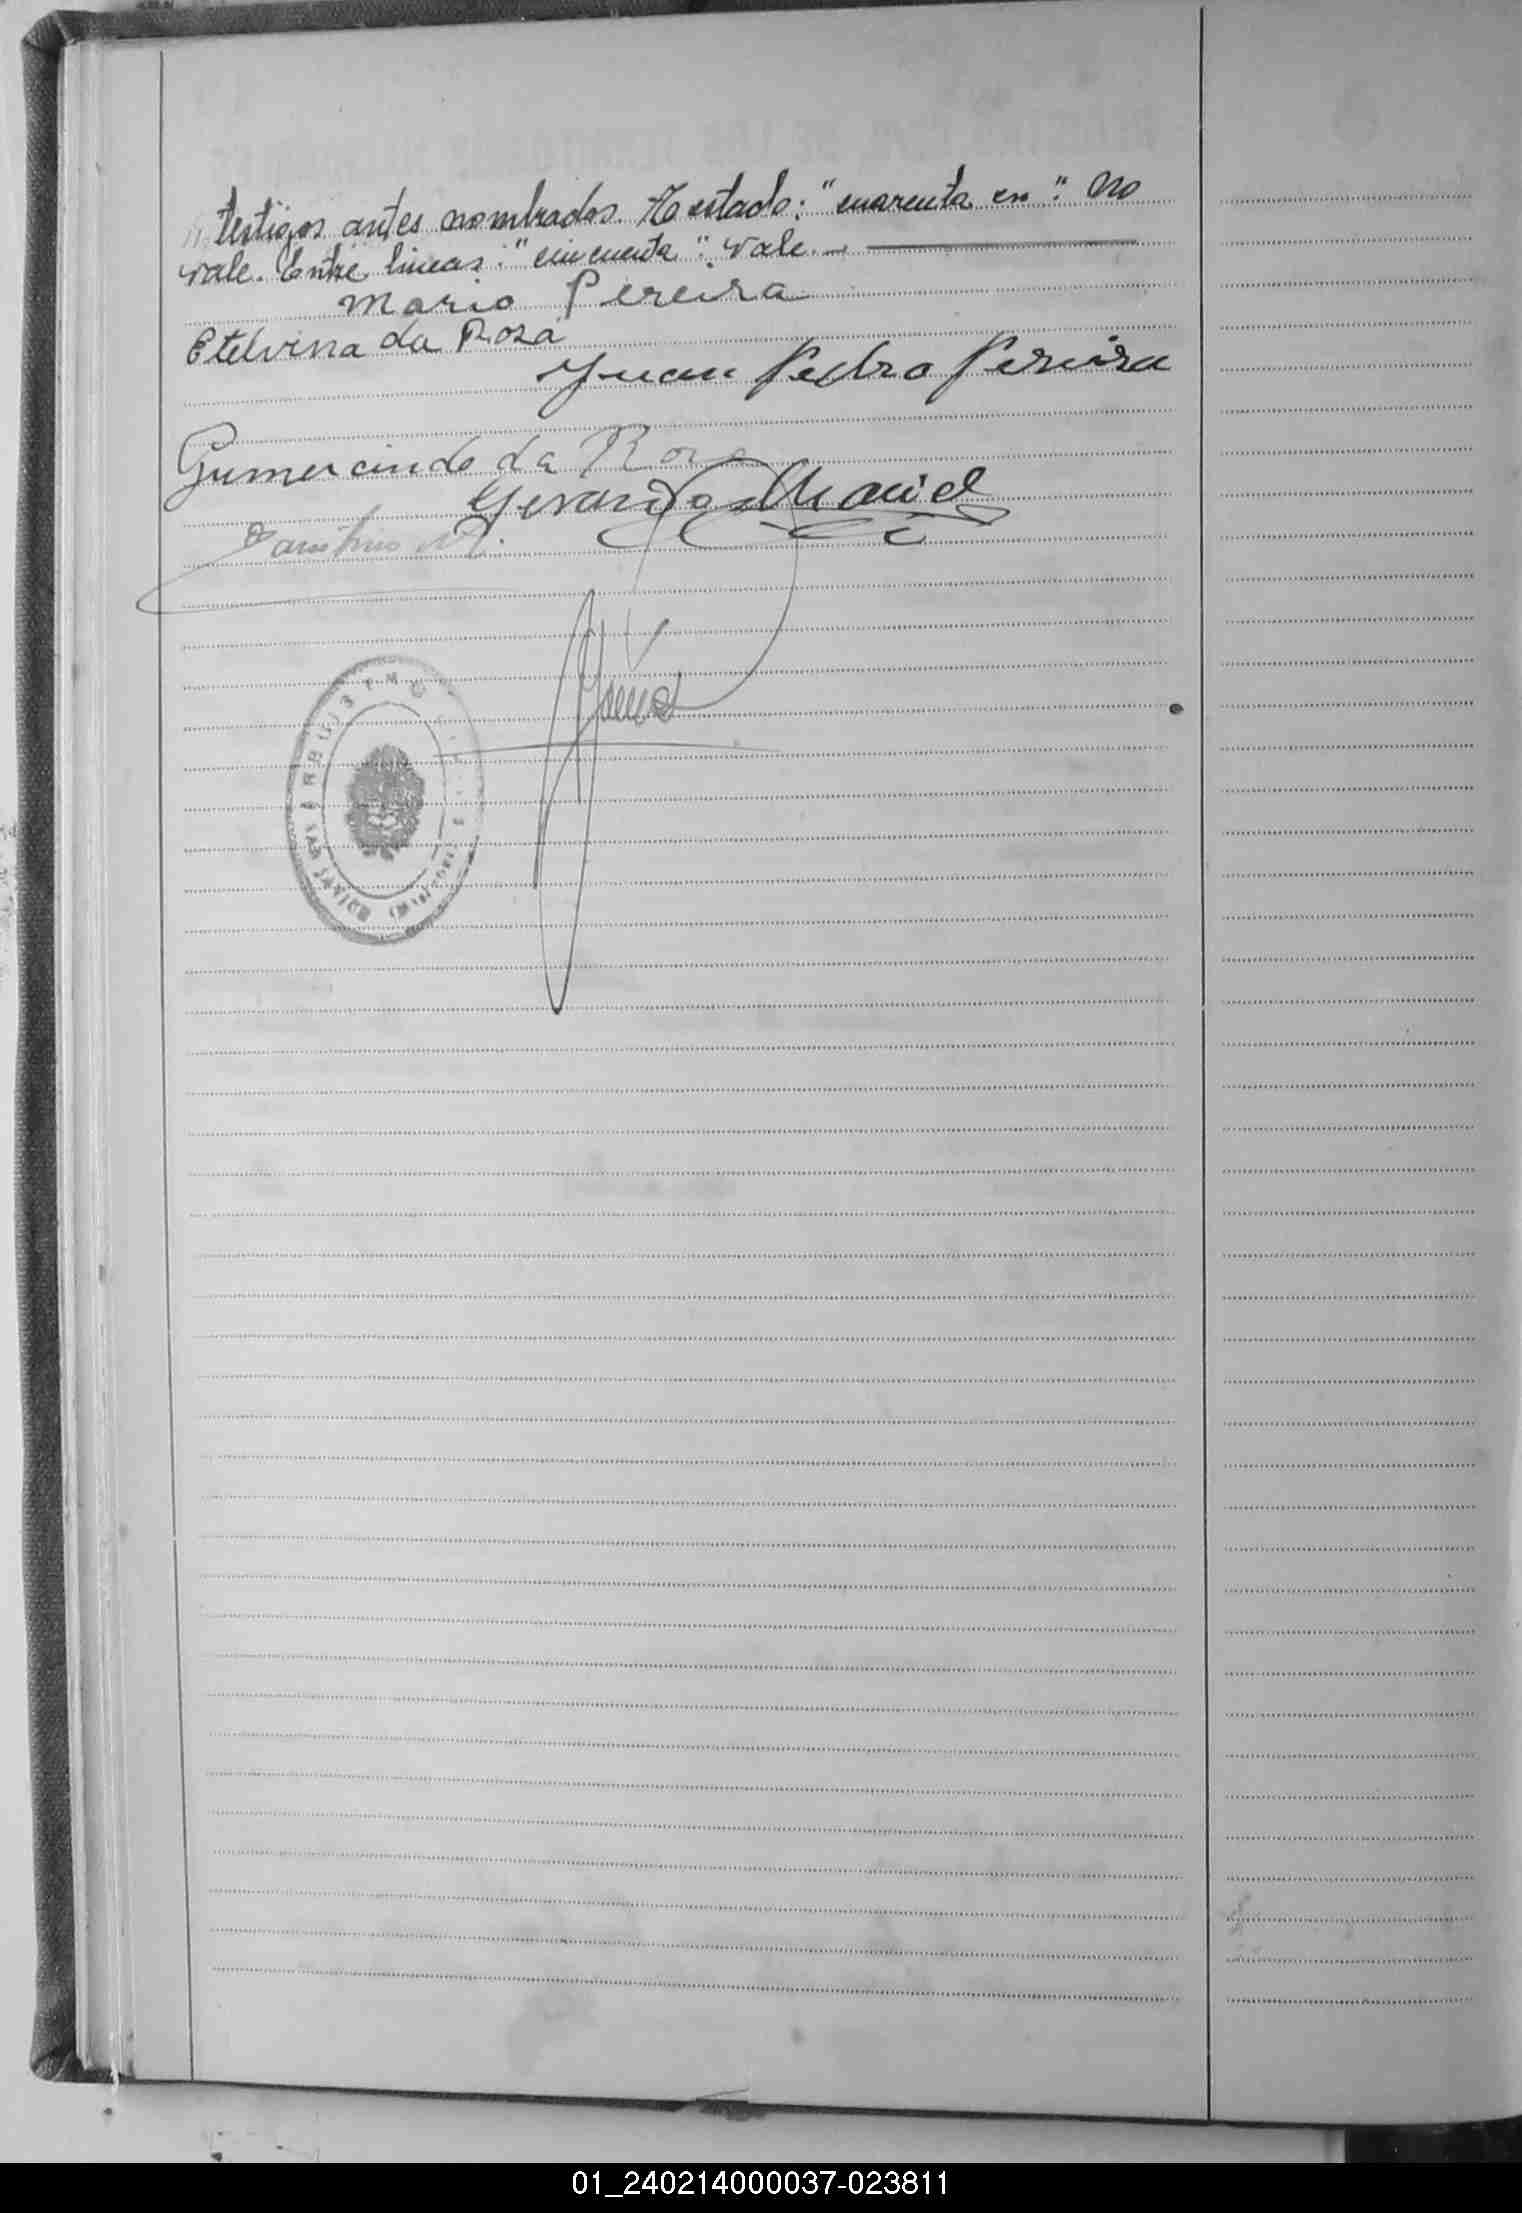 testigos antes nombrados. Testado: "cuarenta en": No
vale. Entre lineas: "cincuenta": Vale. —
Mario Pereira
Etelvina da Rosa
Juan Pedro Pereira
Gumercindo da Rosa
Gerardo
SAN JAVIER
01_240214000037-023811